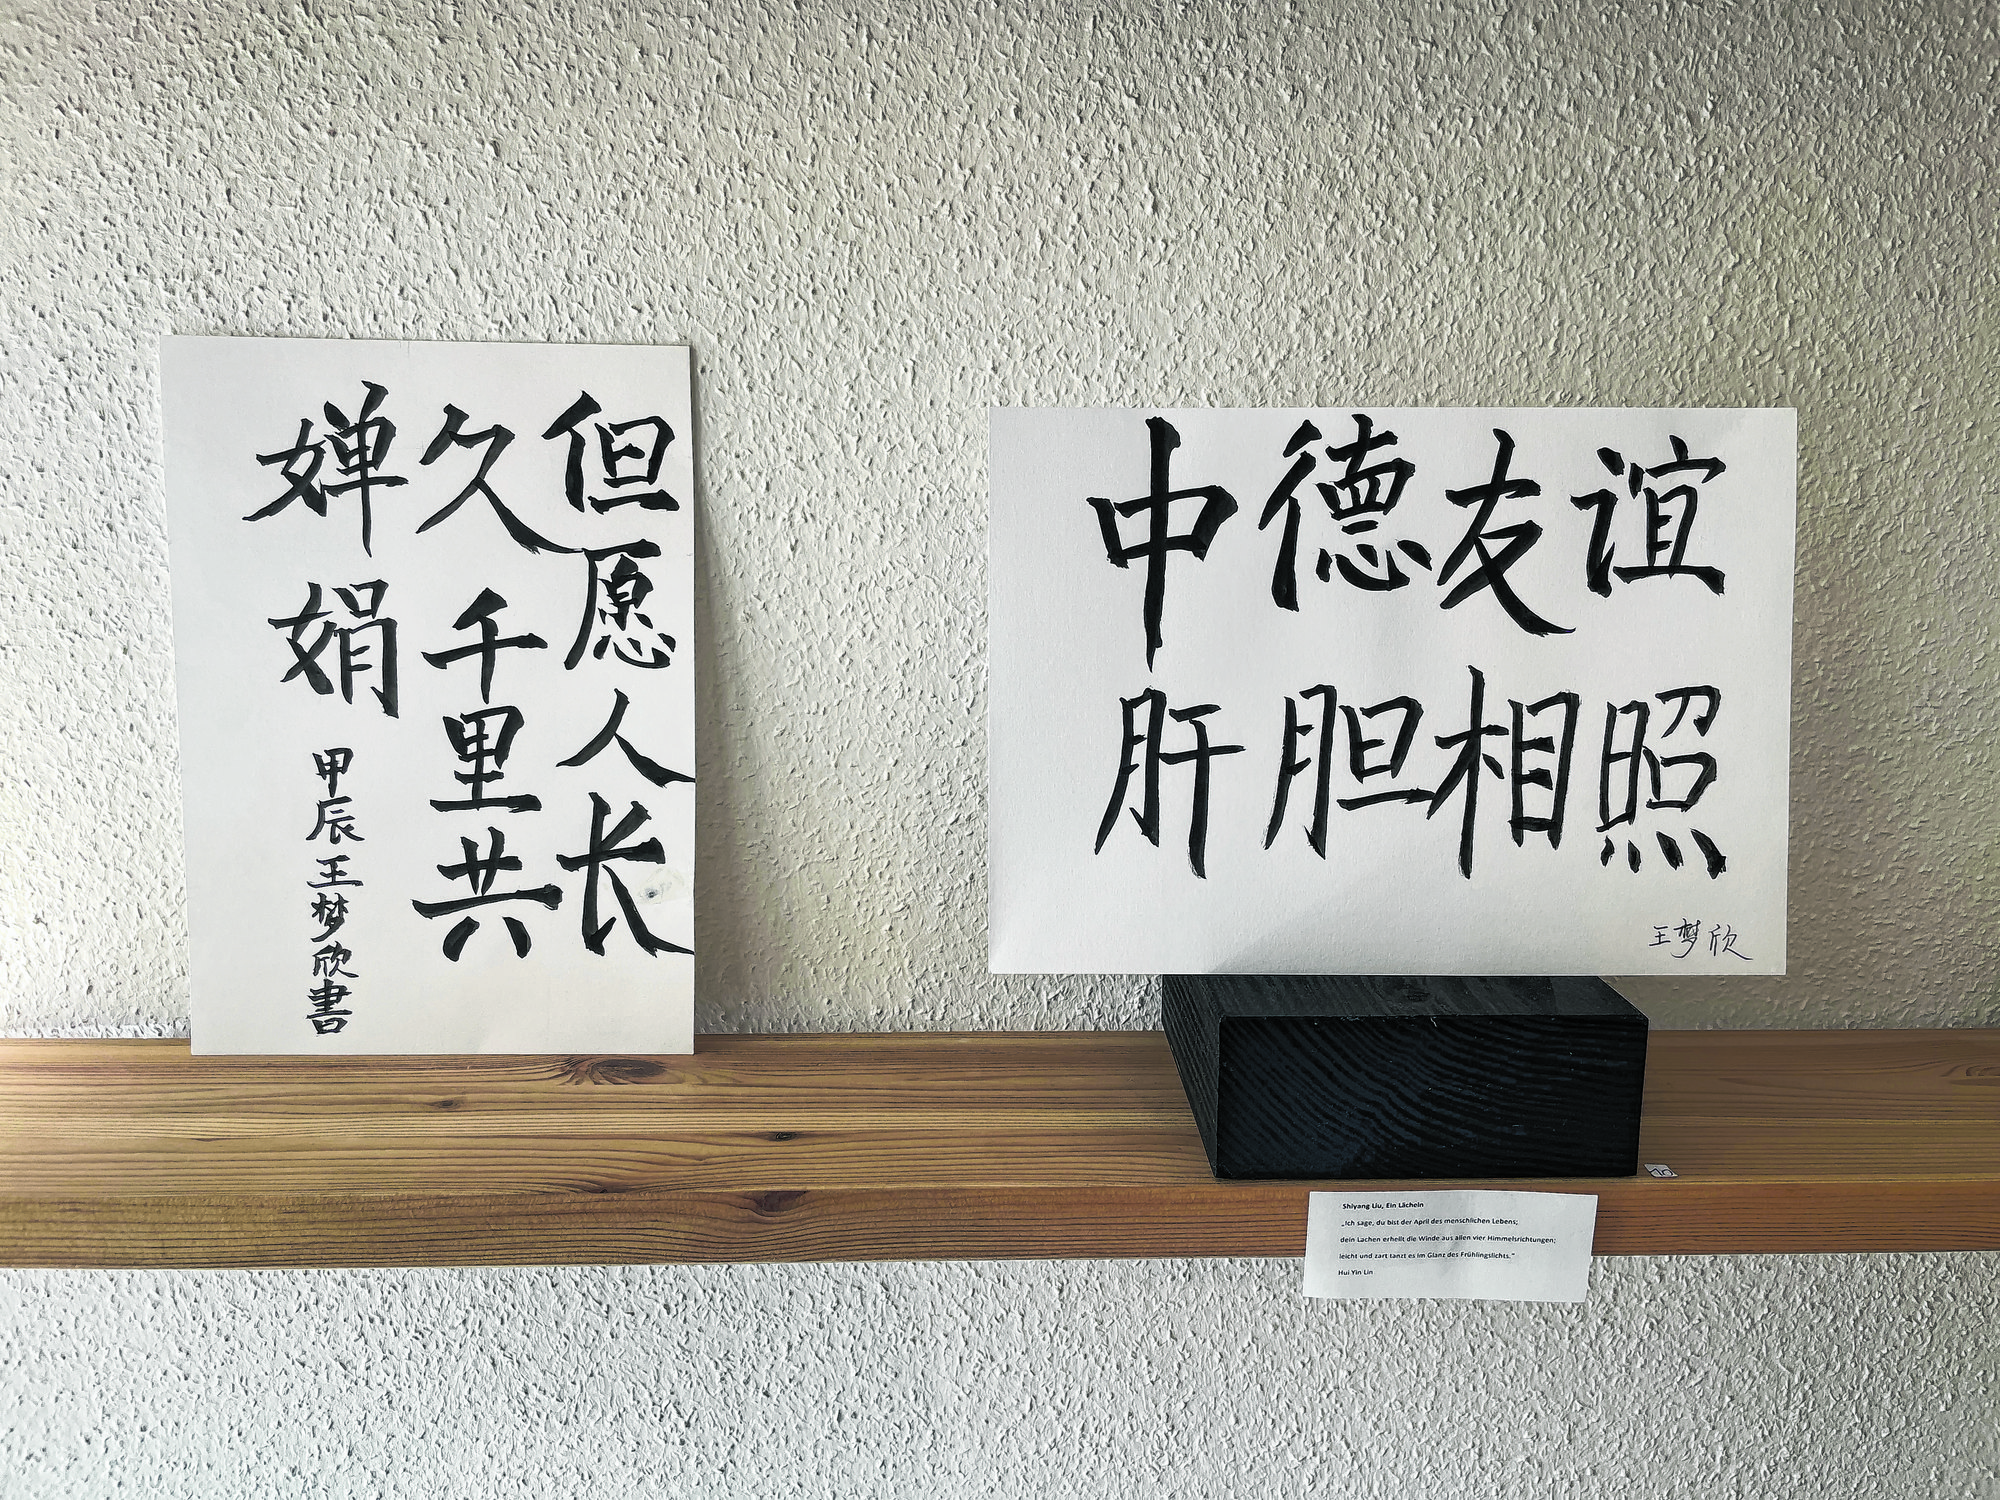 但愿人长
久千里共
婵娟
甲辰王梦欣書
中德友谊
肝胆相照
王梦欣
Shiyang Liu, Ein Lächeln
„Ich sage, du bist der April des menschlichen Lebens;
dein Lachen erhellt die Winde aus allen vier Himmelsrichtungen;
leicht und zart tanzt es im Glanz des Frühlingslichts.“
Hui Yin Lin